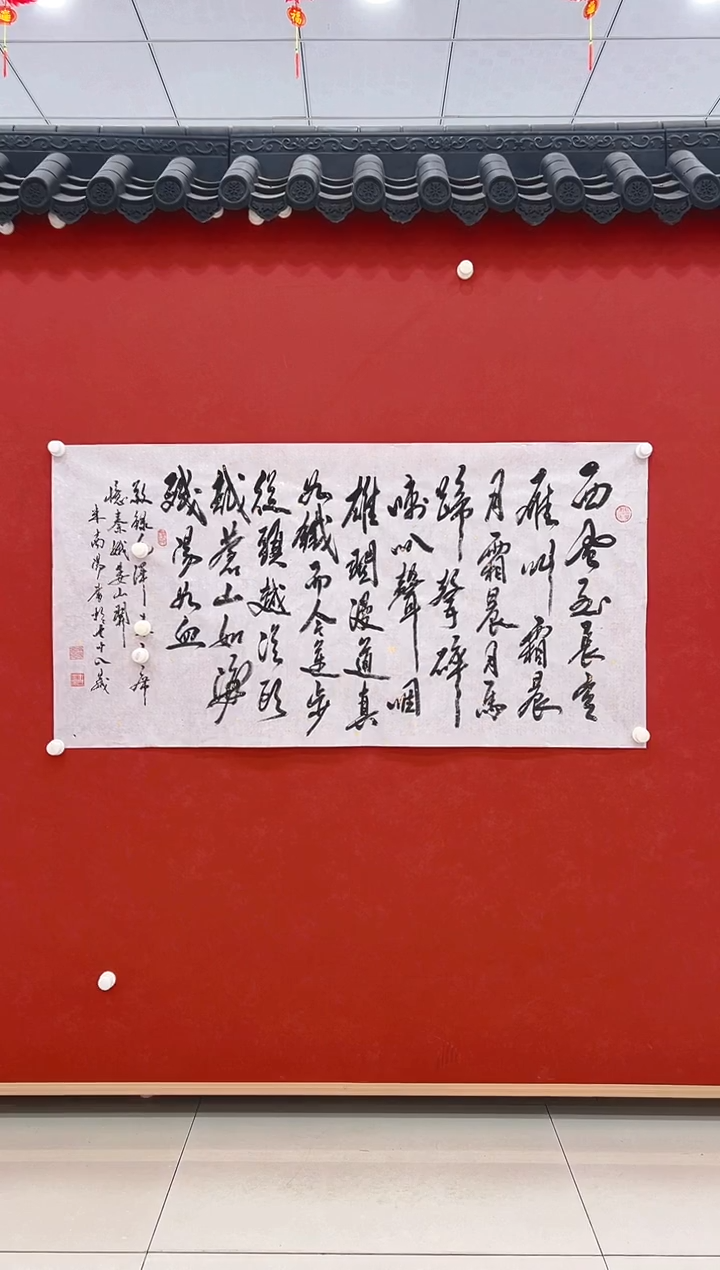 西風烈長空
雁叫霜晨
月霜晨月馬
蹄聲碎
喇叭聲咽
雄關漫道真
如鐵而今邁步
從頭越從頭
越蒼山如海
殘陽如血
敬錄澤席
憶秦娥婁山關
米南陽書於七十八歲
福